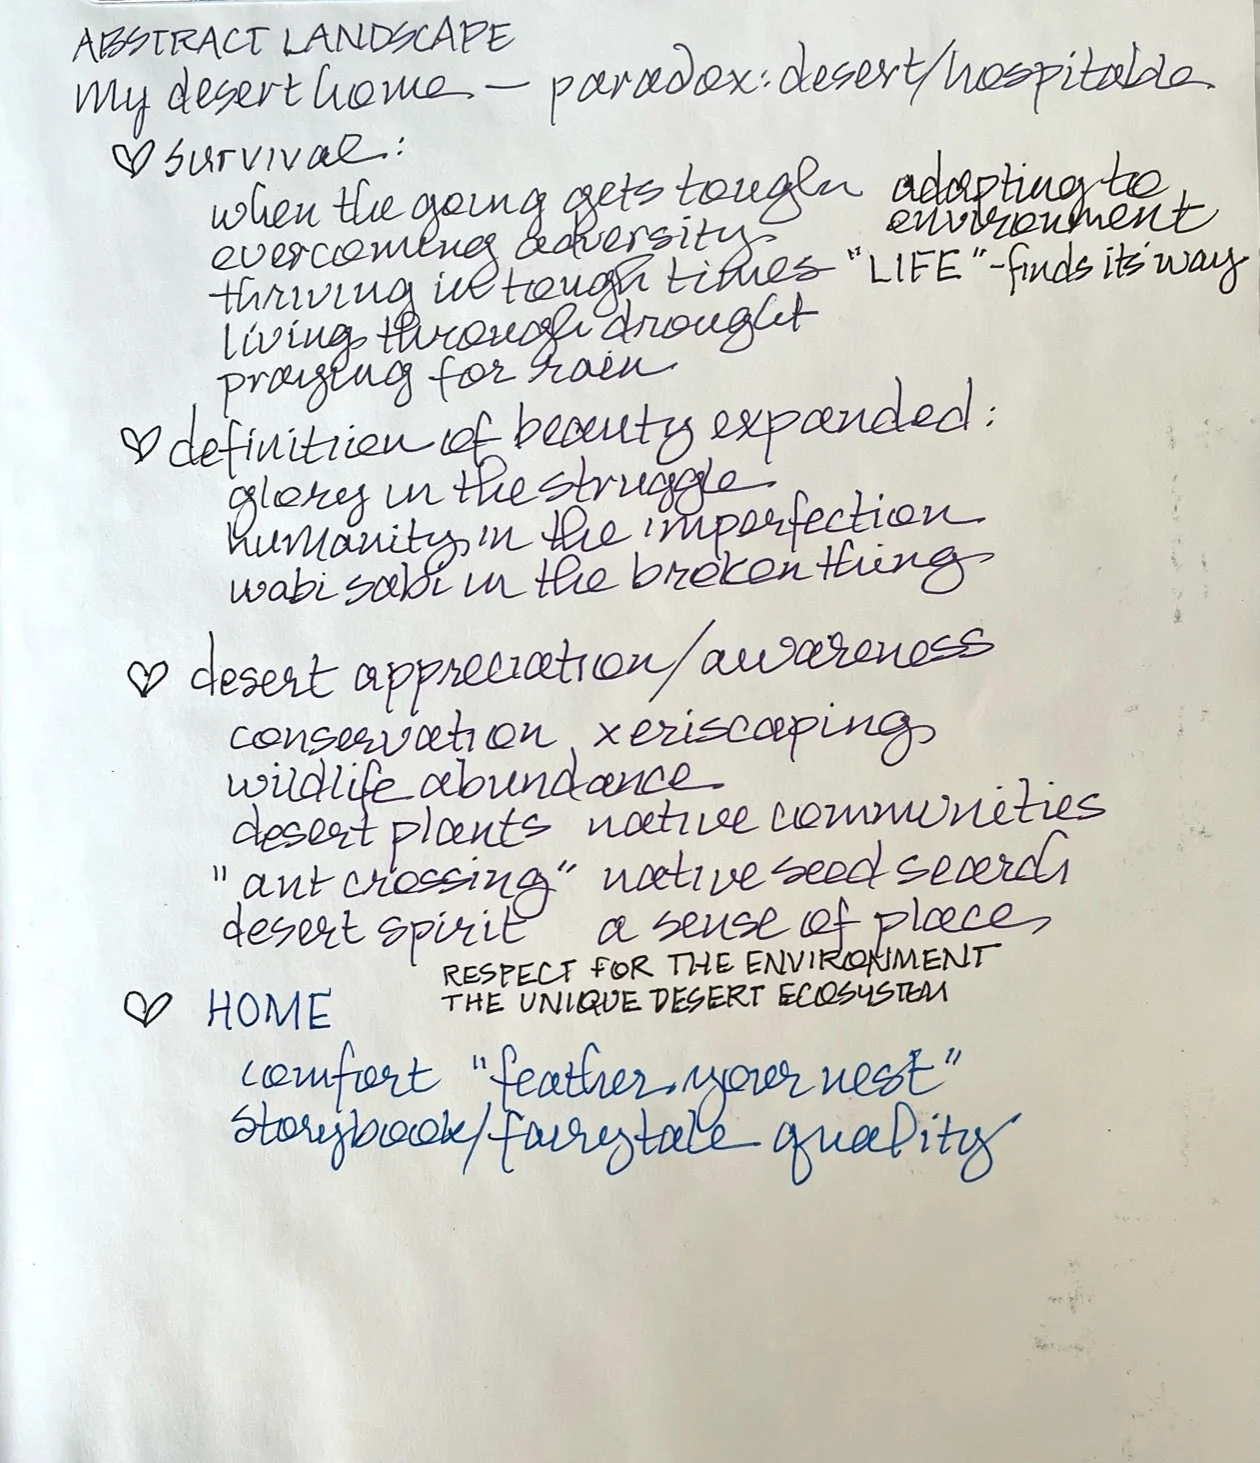 ABSTRACT LANDSCAPE
my desert home — paradox: desert/hospitable
♡ survival:
when the going gets tough adapting to
overcoming adversity environment
thriving in tough times "LIFE" - finds its' way
living through drought
praying for rain
♡ definition of beauty expanded:
glory in the struggle
humanity in the imperfection
wabi sabi in the broken thing
♡ desert appreciation/awareness
conservation, xeriscaping
wildlife abundance
desert plants native communities
"ant crossing" native seed search
desert spirit a sense of place
RESPECT FOR THE ENVIRONMENT
THE UNIQUE DESERT ECOSYSTEM
♡ HOME
comfort "feather your nest"
storybook/fairytale quality